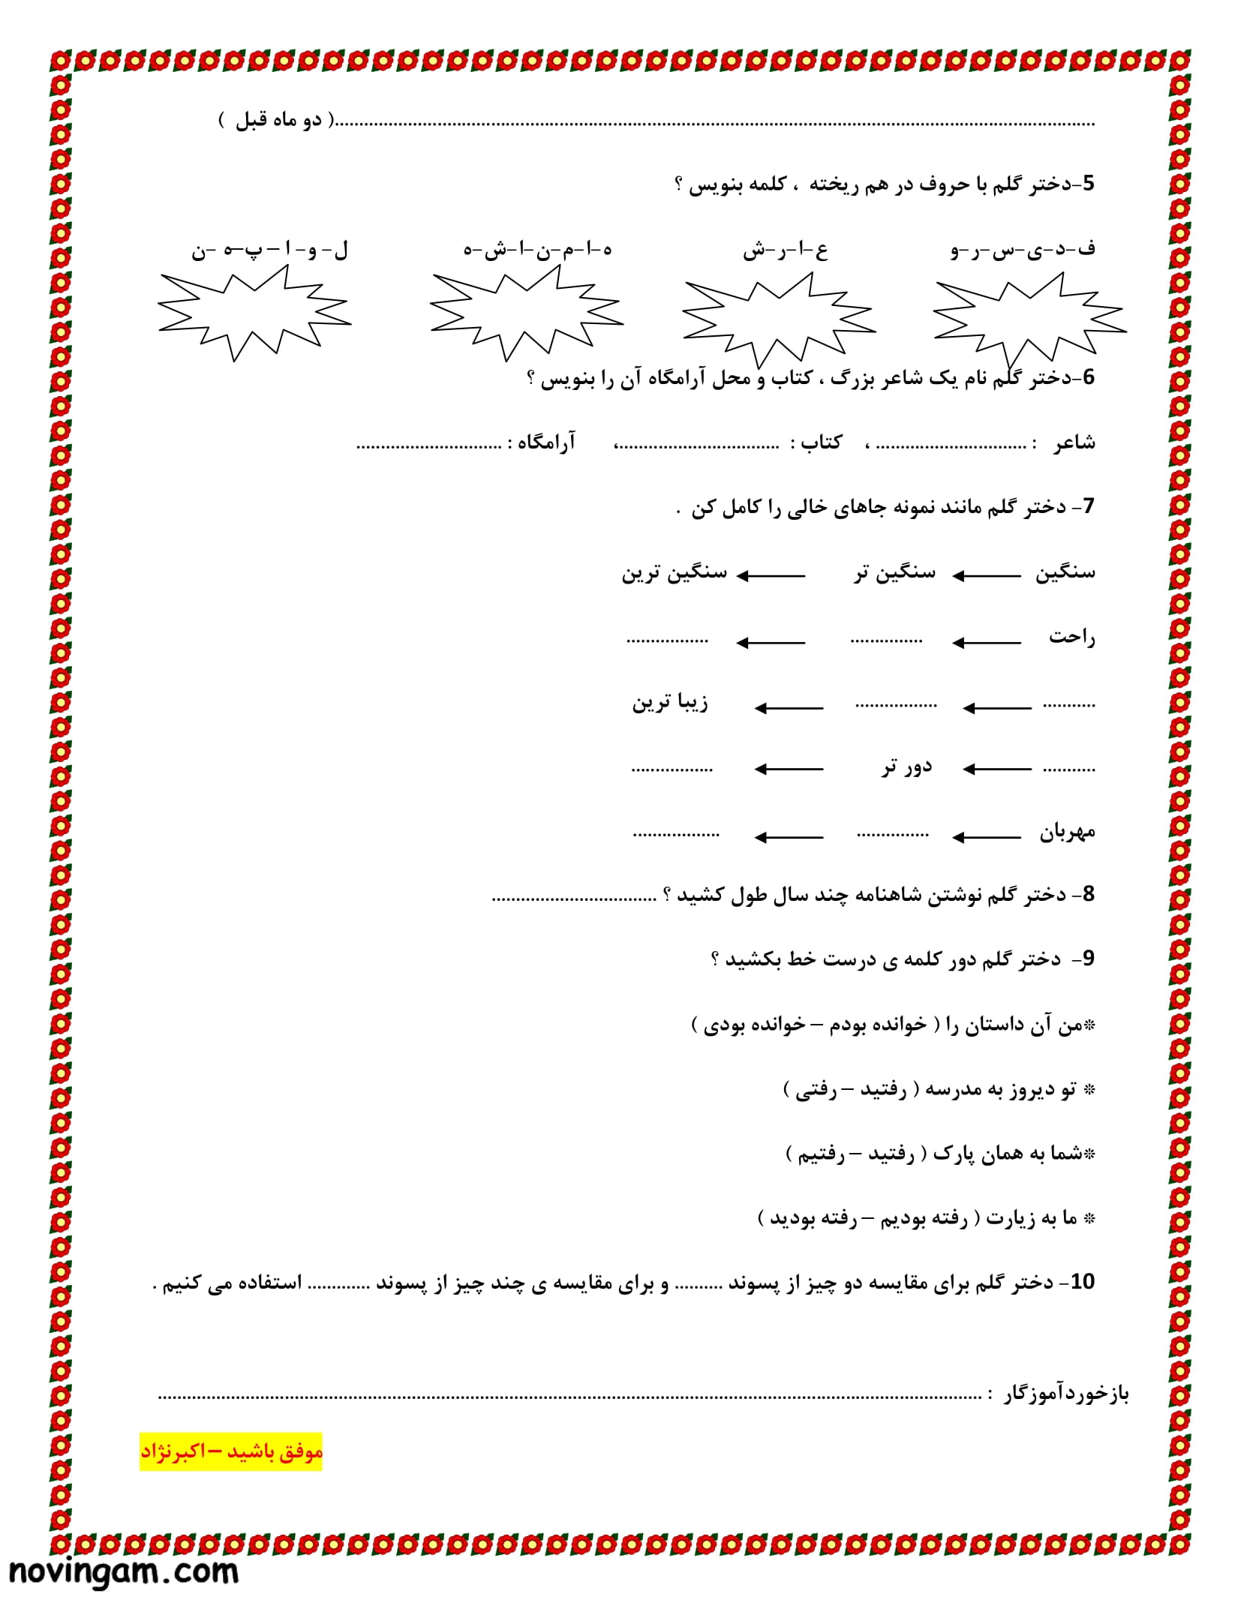 ..........................................................................................................................................................( دو ماه قبل )
5-دختر گلم با حروف در هم ریخته ، کلمه بنویس ؟
ف-د-ی-س-ر-و ع-ا-ر-ش ه-ا-م-ن-ا-ش-ه ل- و- ا – پ–ه -ن
6-دختر گلم نام یک شاعر بزرگ ، کتاب و محل آرامگاه آن را بنویس ؟
شاعر : ............................... ، کتاب : .................................، آرامگاه : ..............................
7- دختر گلم مانند نمونه جاهای خالی را کامل کن .
سنگین سنگین تر سنگین ترین
راحت ............... .................
........... ................. زیبا ترین
........... دور تر .................
مهربان ............... ..................
8- دختر گلم نوشتن شاهنامه چند سال طول کشید ؟ ..................................
9- دختر گلم دور کلمه ی درست خط بکشید ؟
❊من آن داستان را ( خوانده بودم – خوانده بودی )
❊ تو دیروز به مدرسه ( رفتید – رفتی )
❊شما به همان پارک ( رفتید – رفتیم )
❊ ما به زیارت ( رفته بودیم – رفته بودید )
10- دختر گلم برای مقایسه دو چیز از پسوند .......... و برای مقایسه ی چند چیز از پسوند ............. استفاده می کنیم .
بازخوردآموزگار : .........................................................................................................................................................................
موفق باشید – اکبرنژاد
novingam.com